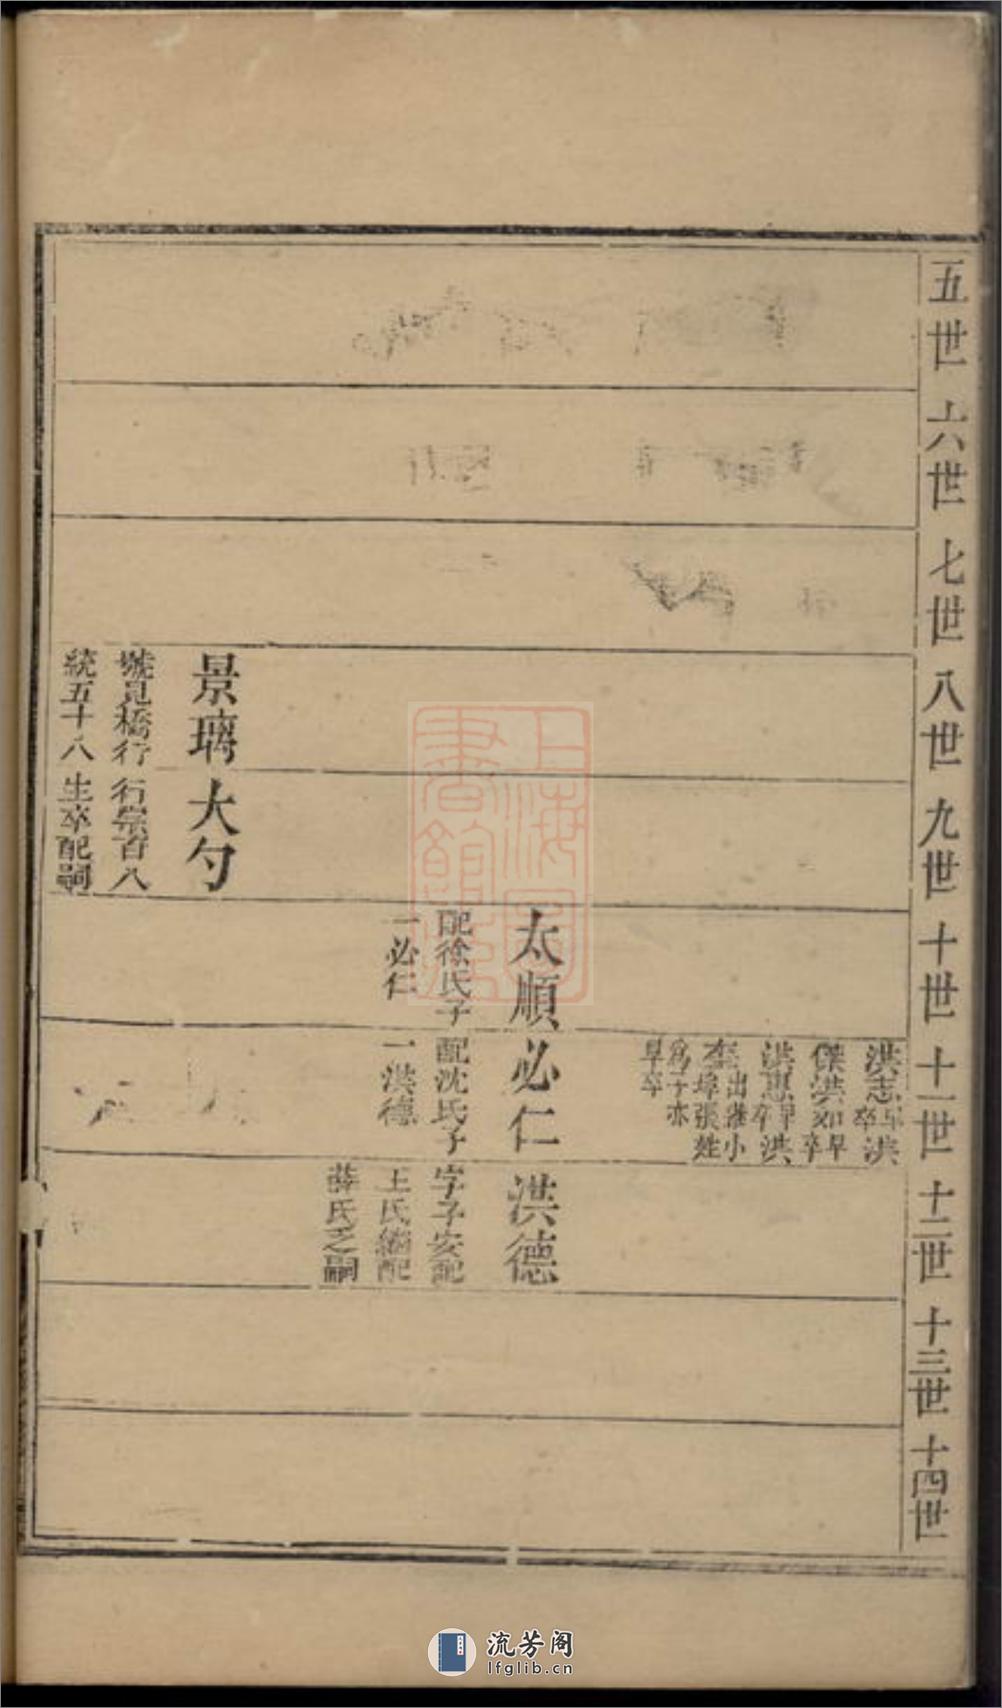 五世 六世 七世 八世 九世 十世 十一世 十二世 十三世 十四世
洪志早卒洪
傑洪如早卒
洪惠早卒洪
出繼小埠張姓
爲子亦早卒
太順
配徐氏子
一必仁
必仁
配沈氏子
一洪德
洪德
字子安配
王氏繼配
薛氏乏嗣
景璃
號見橋行
統五十八
大勺
行崇百八
生卒配嗣
上海圖書館藏
流芳阁
lfglib.cn